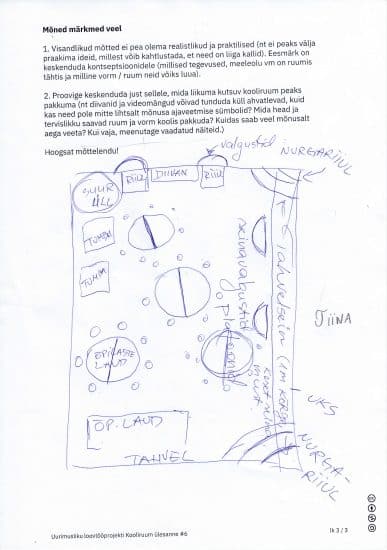 Mõned märkmed veel
1. Visandlikud mõtted ei pea olema realistlikud ja praktilised (nt ei peaks välja
praakima ideid, millest võib kahtlustada, et need on liiga kallid). Eesmärk on
keskenduda kontseptsioonidele (millised tegevused, meeleolu vm on ruumis
tähtis ja milline vorm / ruum neid võiks luua).
2. Proovige keskenduda just sellele, mida liikuma kutsuv kooliruum peaks
pakkuma (nt diivanid ja videomängud võivad tunduda küll ahvatlevad, kuid
kas need pole mitte lihtsalt mõnusa ajaveetmise sümbolid? Mida head ja
tervislikku saavad ruum ja vorm koolis pakkuda? Kuidas saab veel mõnusalt
aega veeta? Kui vaja, meenutage vaadatud näiteid.)
Hoogsat mõttelendu!
valgustid
NURGARIIUL
SUUR
LILL
RIIUL
DIIVAN
RIIUL
TUMM
TUMM
seinavalgustid
tahvelsein (1m kõrgu
Tiina
ÕPILASTE
LAUD
UKS
NURGA-
RIIUL
ÕP. LAUD
TAHVEL
Uurimusliku loovtööprojekti Kooliruum ülesanne #6
lk 3 / 3